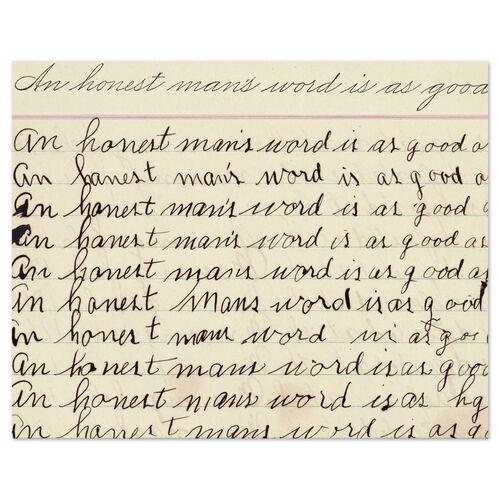 An honest man's word is as good
An honest man's word is as good a
An honest man's word is as good a
An honest man's word is as good a
An honest man's word is as good as
An honest man's word is as good as
An honest Mans word is as good
An honest mans word is as goo
An honest man's word is as good
An honest man's word is as
An honest man's word is as g